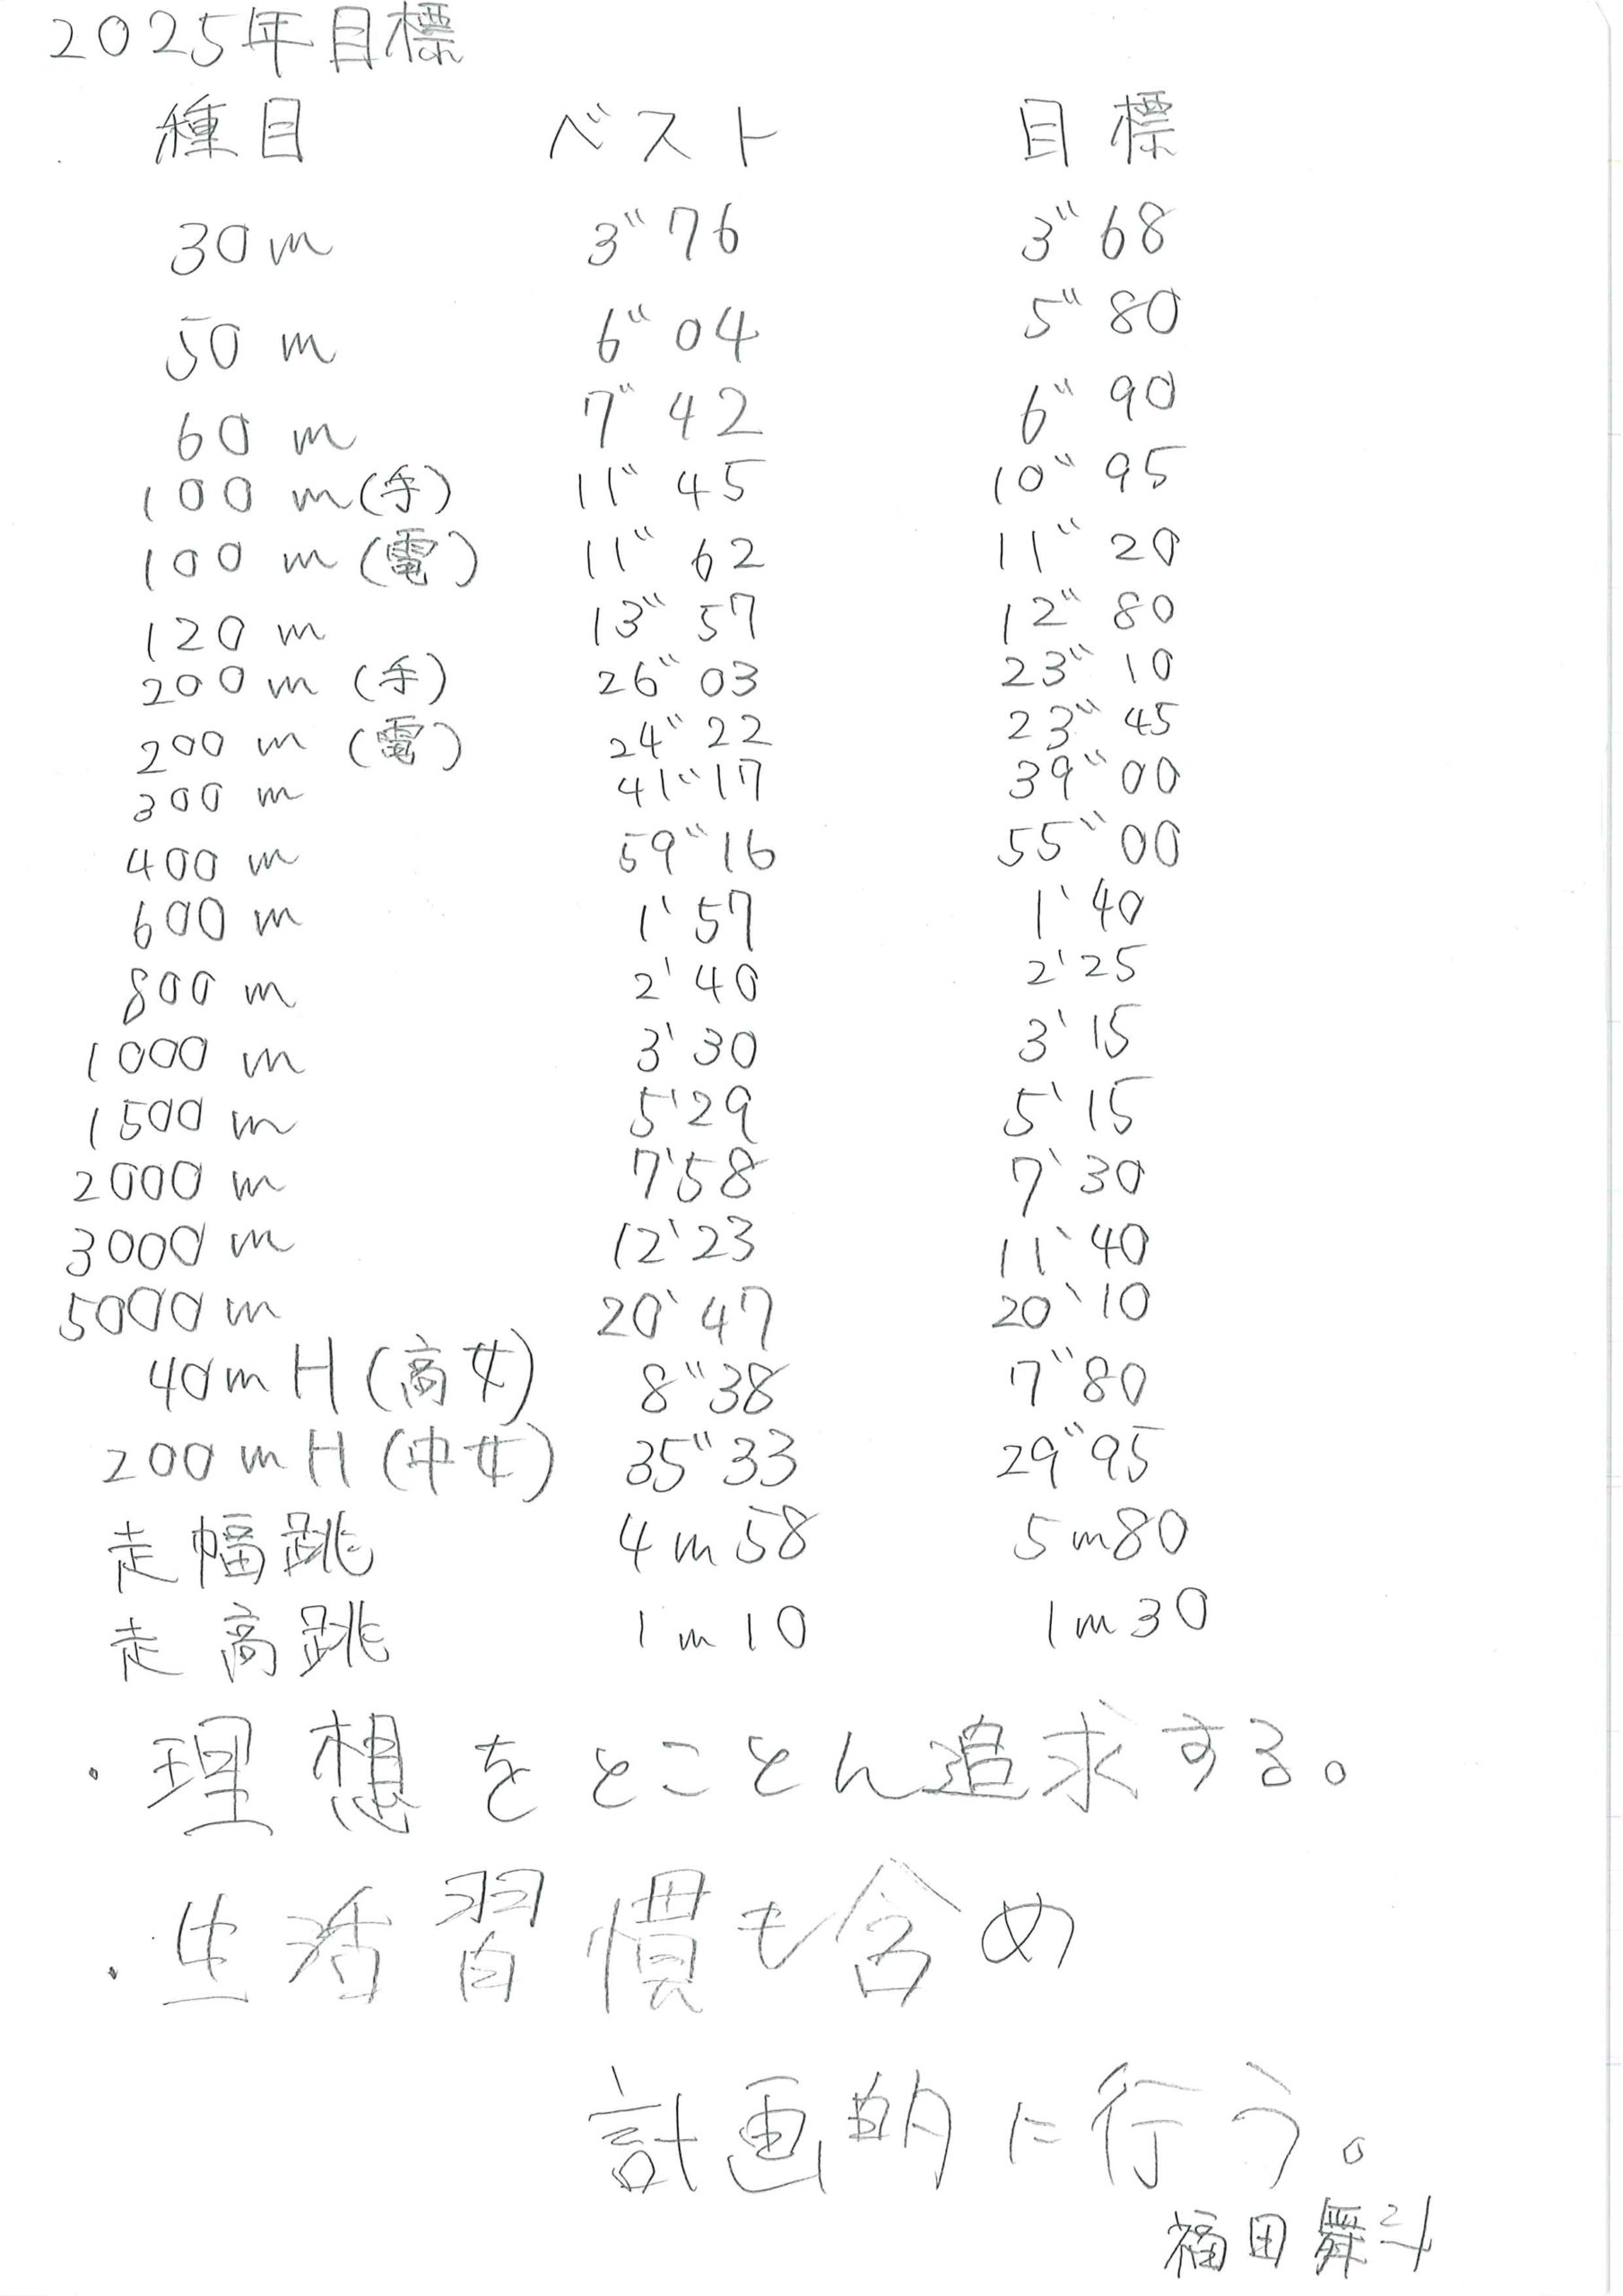 2025年目標
種目 ベスト 目標
30m 3"76 3"68
50m 6"04 5"80
60m 7"42 6"90
100m(手) 11"45 10"95
100m(電) 11"62 11"20
120m 13"57 12"80
200m(手) 26"03 23"10
200m(電) 24"22 23"45
300m 41"17 39"00
400m 59"16 55"00
600m 1'57 1'40
800m 2'40 2'25
1000m 3'30 3'15
1500m 5'29 5'15
2000m 7'58 7'30
3000m 12'23 11'40
5000m 20'47 20'10
40mH(高女) 8"38 7"80
200mH(中女) 35"33 29"95
走幅跳 4m58 5m80
走高跳 1m10 1m30
・理想をとことん追求する。
・生活習慣も含め
計画的に行う。
福田舞斗